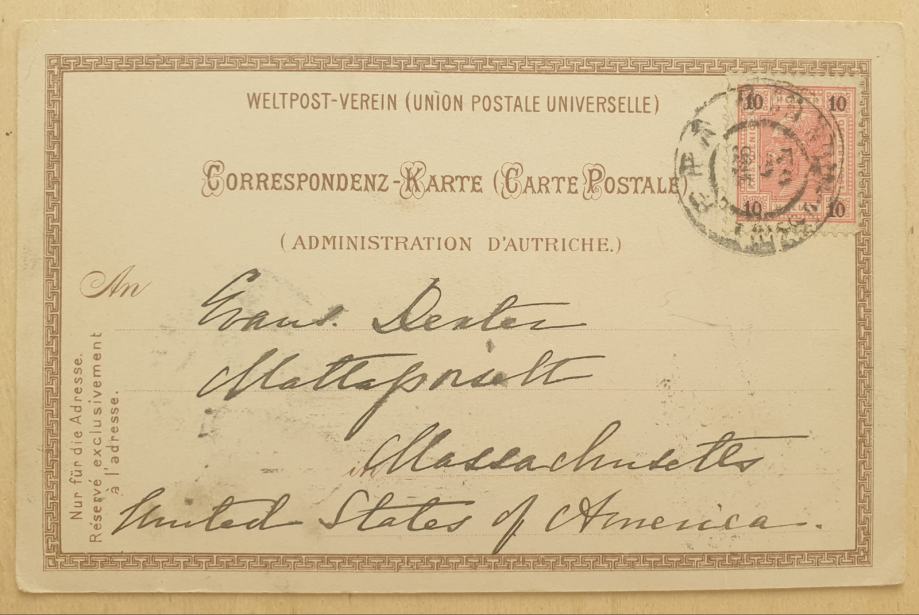 WELTPOST-VEREIN (UNION POSTALE UNIVERSELLE)
CORRESPONDENZ-KARTE (CARTE POSTALE
(ADMINISTRATION D'AUTRICHE.)
10 10
10 10
An
Evans. Dexter
Mattapoisett
Massachusetts
United States of America.
Nur für die Adresse.
Réservé exclusivement
à l'adresse.